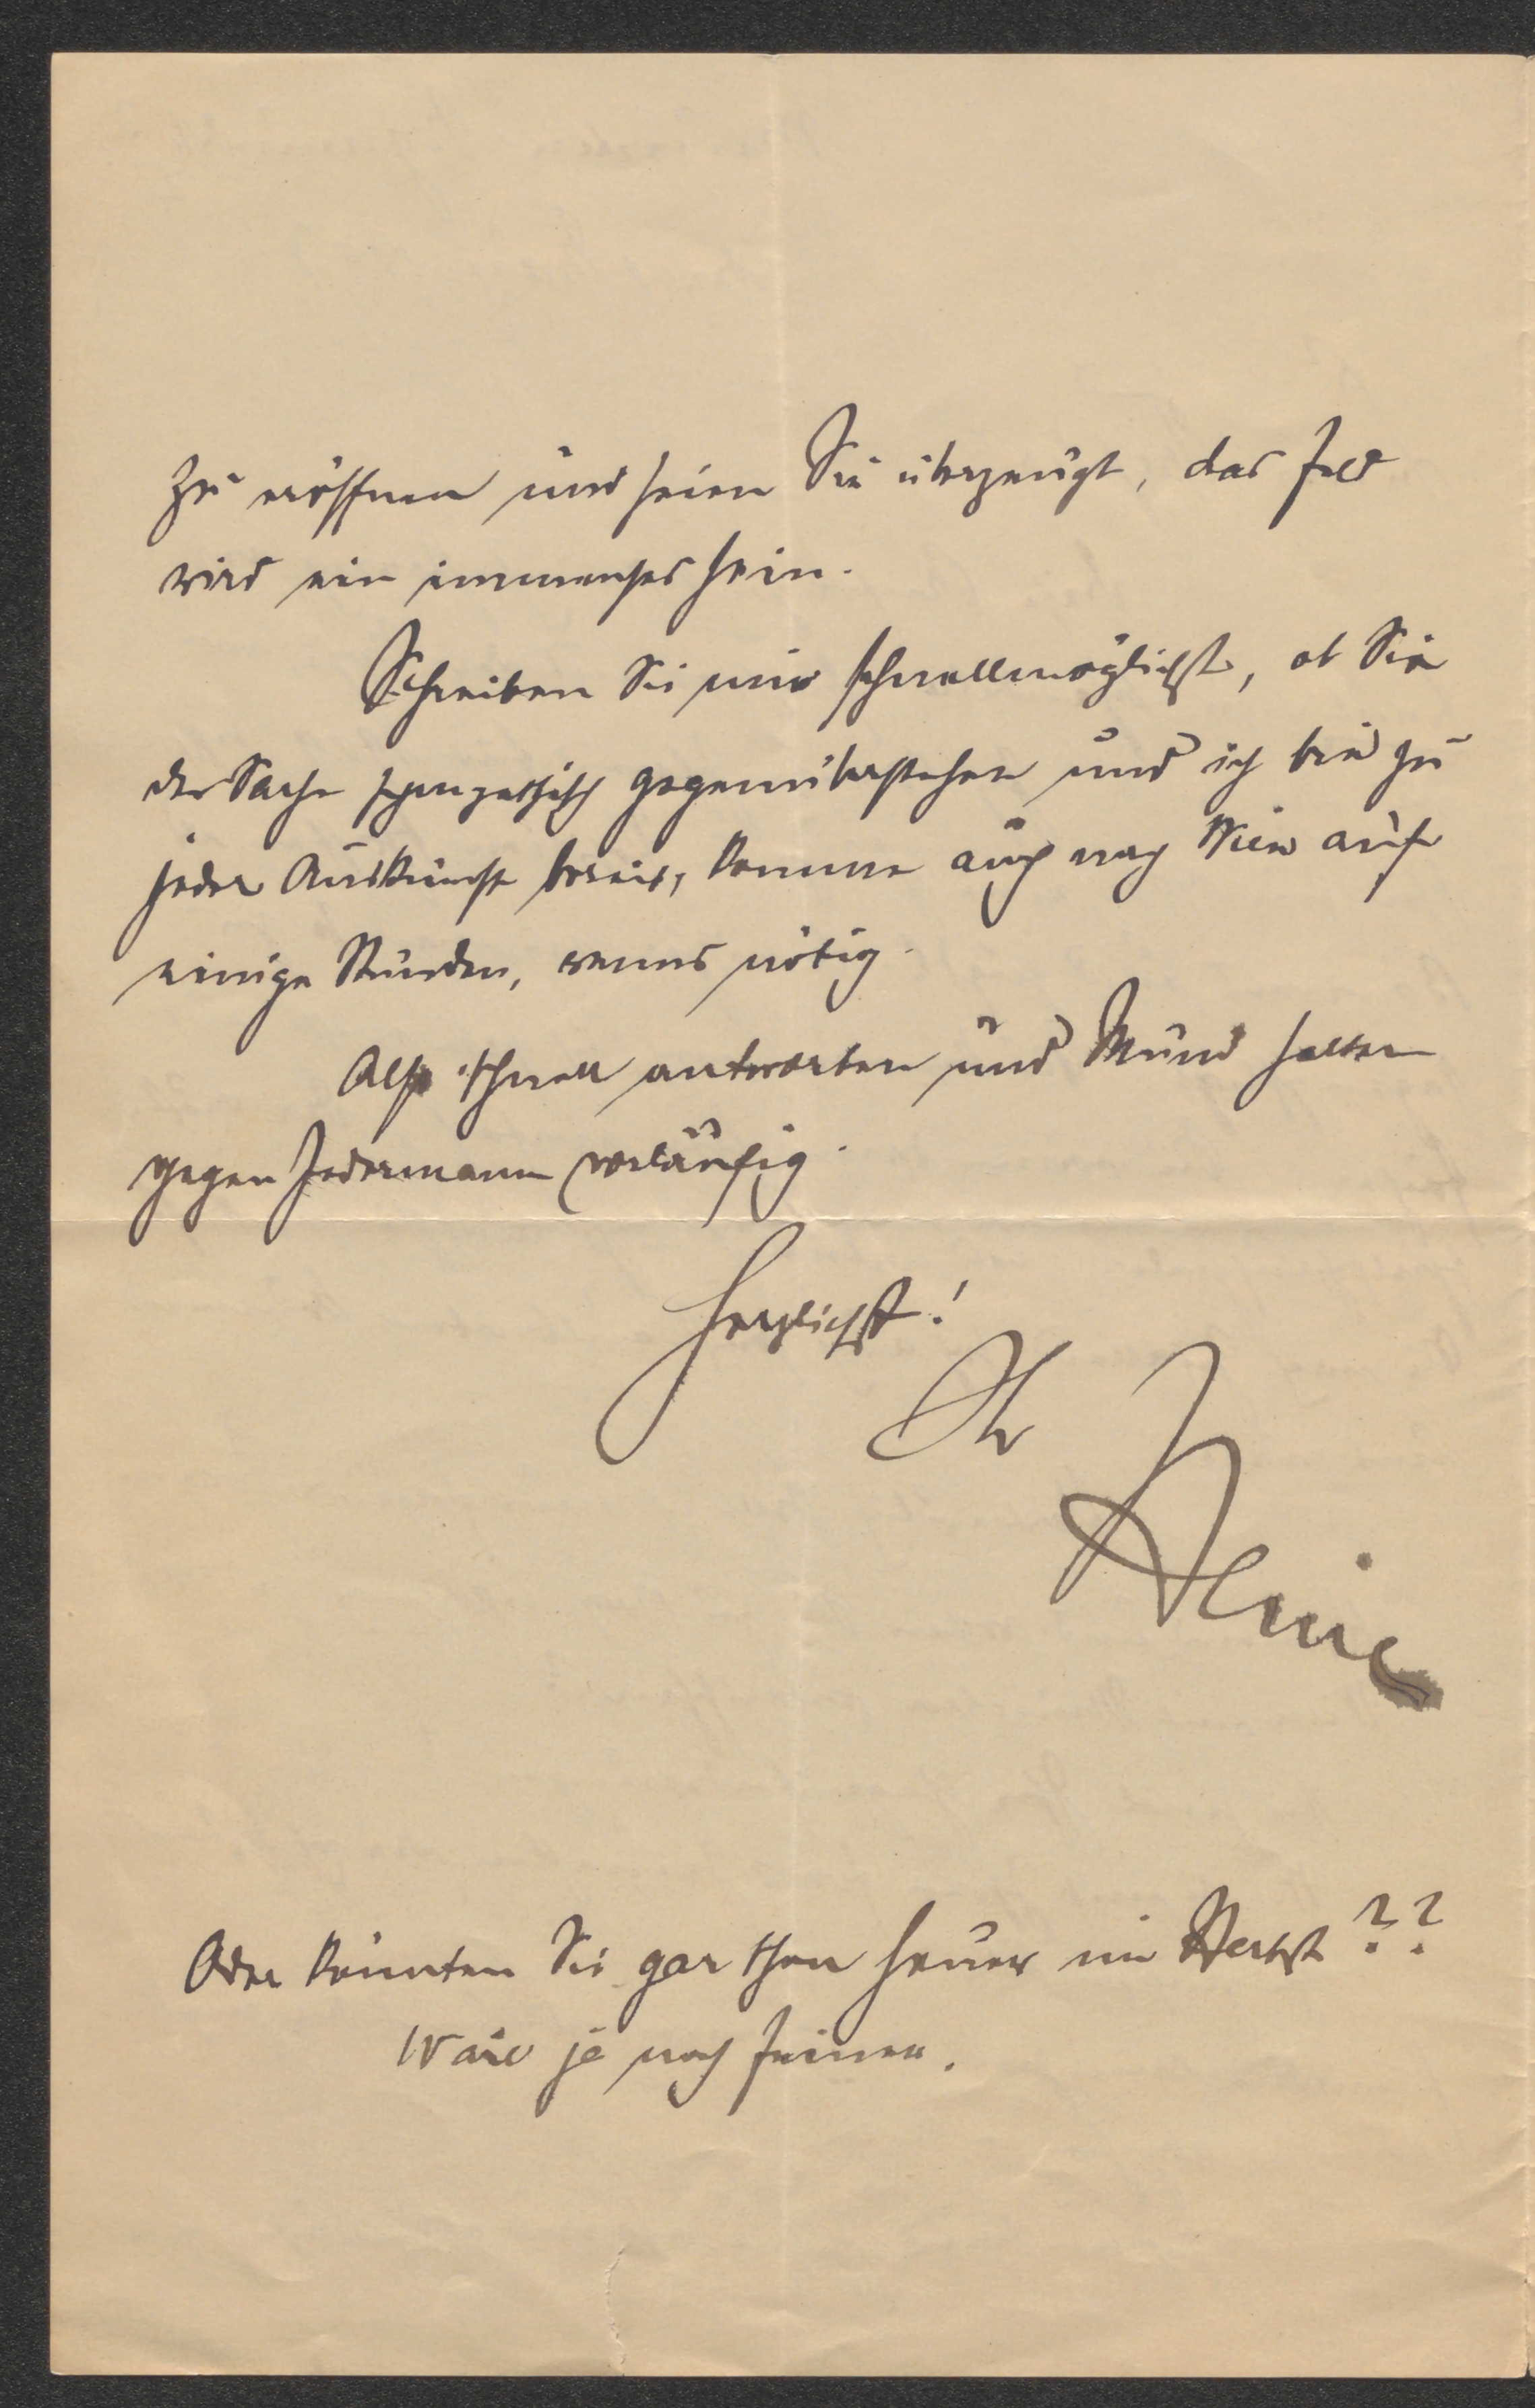 zu eröffnen und seien Sie überzeugt, das Feld
wird ein immenses sein.
Schreiben Sie mir schnellmöglichst, ob Sie
der Sache sympathisch gegenüberstehen und ich bin zu
jeder Auskunft bereit, komme auch nach Wien auf
einige Stunden, wenns nötig.
Also schnell antworten und Mund halten
gegen Jedermann vorläufig.
Herzlichst!
Ihr
Oder könnten Sie gar schon heuer im Herbst??
Wäre ja noch feiner.